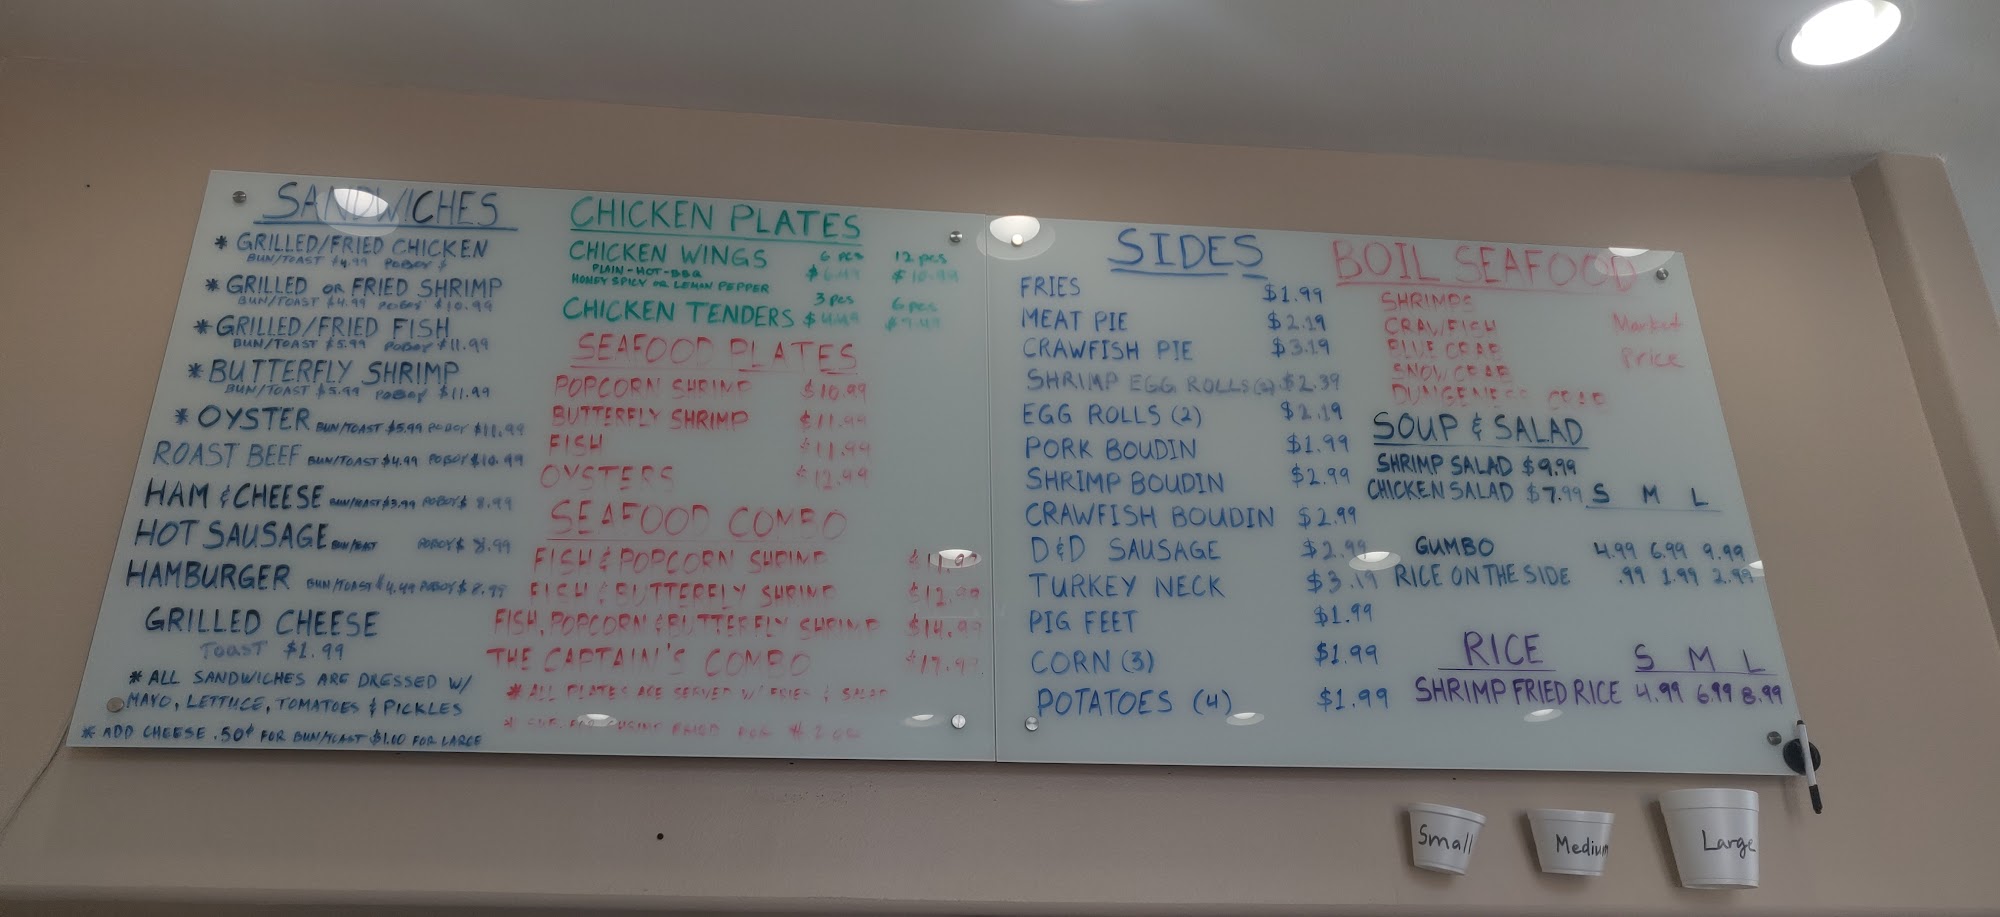 SANDWICHES
* GRILLED/FRIED CHICKEN
BUN/TOAST $4.99 POBOY $
* GRILLED OR FRIED SHRIMP
BUN/TOAST $4.99 POBOY $10.99
* GRILLED/FRIED FISH
BUN/TOAST $5.99 POBOY $11.99
* BUTTERFLY SHRIMP
BUN/TOAST $5.99 POBOY $11.99
* OYSTER BUN/TOAST $5.99 POBOY $11.99
ROAST BEEF BUN/TOAST $4.99 POBOY $10.99
HAM & CHEESE BUN/TOAST $3.99 POBOY $ 8.99
HOT SAUSAGE POBOY $ 8.99
HAMBURGER BUN/TOAST $4.49 POBOY $ 8.99
GRILLED CHEESE
TOAST $1.99
* ALL SANDWICHES ARE DRESSED W/
MAYO, LETTUCE, TOMATOES & PICKLES
* ADD CHEESE .50¢ FOR BUN/TOAST $1.00 FOR LARGE
CHICKEN PLATES
CHICKEN WINGS 6 pcs 12 pcs
PLAIN - HOT - BBQ $6.49 $10.99
HONEY SPICY OR LEMON PEPPER
CHICKEN TENDERS 3 pcs 6 pcs
$4.49 $7.49
SEAFOOD PLATES
POPCORN SHRIMP $10.99
BUTTERFLY SHRIMP $11.99
FISH $11.99
OYSTERS $12.99
SEAFOOD COMBO
FISH & POPCORN SHRIMP
FISH & BUTTERFLY SHRIMP $12.99
FISH, POPCORN & BUTTERFLY SHRIMP $14.99
THE CAPTAIN'S COMBO $17.99
* ALL PLATES ARE SERVED W/ FRIES & SALAD
FRIED FOR $2.00
SIDES
FRIES $1.99
MEAT PIE $2.19
CRAWFISH PIE $3.19
SHRIMP EGG ROLLS (2) $2.39
EGG ROLLS (2) $2.19
PORK BOUDIN $1.99
SHRIMP BOUDIN $2.99
CRAWFISH BOUDIN $2.99
D&D SAUSAGE $2.99
TURKEY NECK $3.19
PIG FEET $1.99
CORN (3) $1.99
POTATOES (4) $1.99
BOIL SEAFOOD
SHRIMPS
CRAWFISH Market
BLUE CRAB Price
SNOW CRAB
DUNGENESS CRAB
SOUP & SALAD
SHRIMP SALAD $9.99
CHICKEN SALAD $7.99 S M L
GUMBO 4.99 6.99 9.99
RICE ON THE SIDE .99 1.99 2.99
RICE S M L
SHRIMP FRIED RICE 4.99 6.99 8.99
Small Medium Large